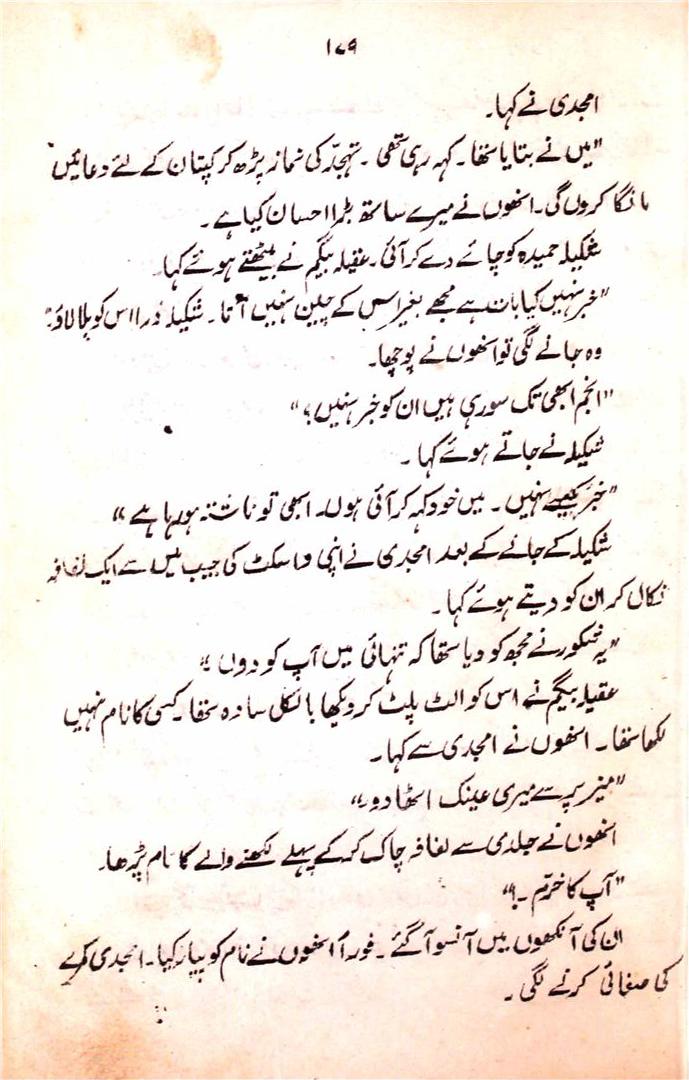 ۱۷۹
امجدی نے کہا۔
"میں نے بتایا تھا۔ کہہ رہی تھی۔ تہجد کی نماز پڑھ کر کپتان کے لئے دعائیں
مانگا کروں گی۔ انھوں نے میرے ساتھ بڑا احسان کیا ہے۔
شکیلہ حمیدہ کو چائے دے کر آئی۔ عقیلہ بیگم نے بیٹھتے ہوئے کہا۔
"خبر نہیں کیا بات ہے مجھے بغیر اس کے چین نہیں آتا۔ شکیلہ ذرا اس کو بلا لاؤ"
وہ جانے لگی تو انھوں نے پوچھا۔
"انجم ابھی تک سو رہی ہیں ان کو خبر نہیں؟"
شکیلہ نے جاتے ہوئے کہا۔
"خبر کیسے نہیں۔ میں خود کہہ کر آئی ہوں۔ ابھی تو ناشتہ ہو رہا ہے"
شکیلہ کے جانے کے بعد امجدی نے اپنی واسکٹ کی جیب میں سے ایک لفافہ
نکال کر ان کو دیتے ہوئے کہا۔
"یہ شکور نے مجھ کو دیا تھا کہ تنہائی میں آپ کو دوں"
عقیلہ بیگم نے اس کو الٹ پلٹ کر دیکھا بالکل سادہ تھا۔ کسی کا نام نہیں
لکھا تھا۔ انھوں نے امجدی سے کہا۔
"میز پر سے میری عینک اٹھا دو"
انھوں نے جلدی سے لفافہ چاک کر کے پہلے لکھنے والے کا نام پڑھا۔
"آپ کا خرّم۔!"
ان کی آنکھوں میں آنسو آ گئے۔ فوراً انھوں نے نام کو پیار کیا۔ امجدی کمرے
کی صفائی کرنے لگی۔